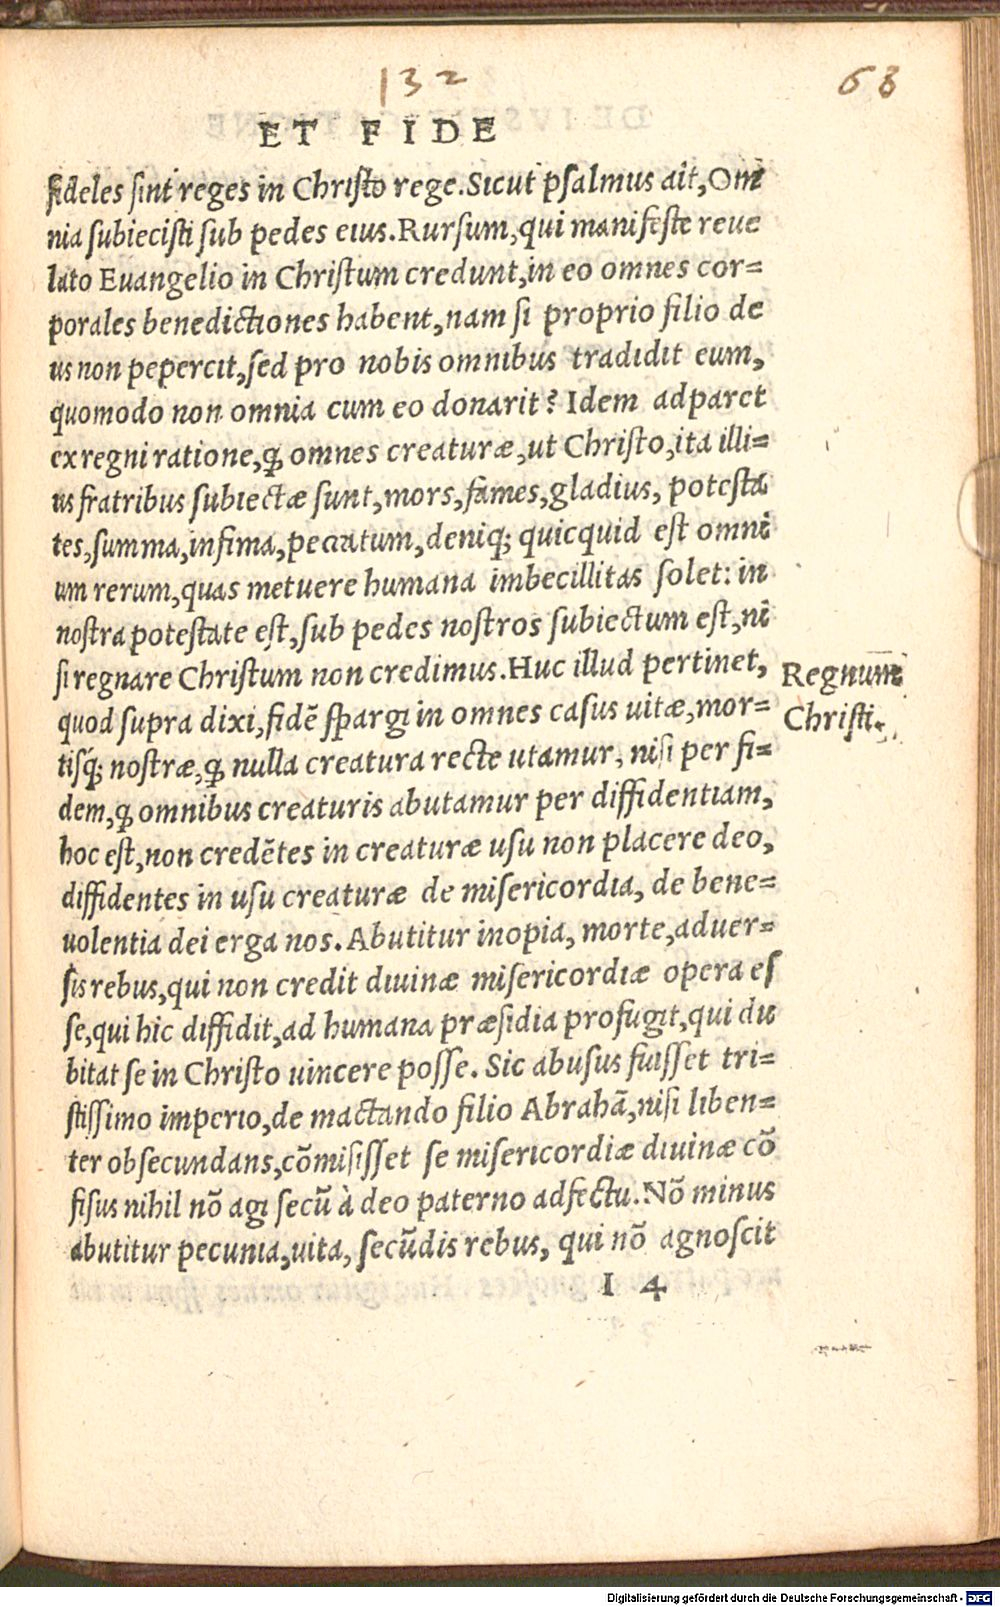 132
68
ET FIDE
fideles sint reges in Christo rege. Sicut psalmus ait, Om
nia subiecisti sub pedes eius. Rursum, qui manifeste reue
lato Euangelio in Christum credunt, in eo omnes cor=
porales benedictiones habent, nam si proprio filio de
us non pepercit, sed pro nobis omnibus tradidit eum,
quomodo non omnia cum eo donarit? Idem adparet
ex regni ratione, ꝙ omnes creaturæ, ut Christo, ita illi=
us fratribus subiectæ sunt, mors, fames, gladius, potesta
tes, summa, infima, peccatum, deniq; quicquid est omni
um rerum, quas metuere humana imbecillitas solet: in
nostra potestate est, sub pedes nostros subiectum est, ni
si regnare Christum non credimus. Huc illud pertinet,
Regnum
quod supra dixi, fidẽ spargi in omnes casus uitæ, mor=
Christi.
tisq́; nostræ, ꝙ nulla creatura recte utamur, nisi per fi=
dem, ꝙ omnibus creaturis abutamur per diffidentiam,
hoc est, non credẽtes in creaturæ usu non placere deo,
diffidentes in usu creaturæ de misericordia, de bene=
uolentia dei erga nos. Abutitur inopia, morte, aduer=
sis rebus, qui non credit diuinæ misericordiæ opera es
se, qui hic diffidit, ad humana præsidia profugit, qui du
bitat se in Christo uincere posse. Sic abusus fuisset tri=
stissimo imperio, de mactando filio Abrahã, nisi liben=
ter obsecundans, cõmisisset se misericordiæ diuinæ cõ
fisus nihil nõ agi secũ à deo paterno adfectu. Nõ minus
abutitur pecunia, uita, secũdis rebus, qui nõ agnoscit
I 4
Digitalisierung gefördert durch die Deutsche Forschungsgemeinschaft - DFG